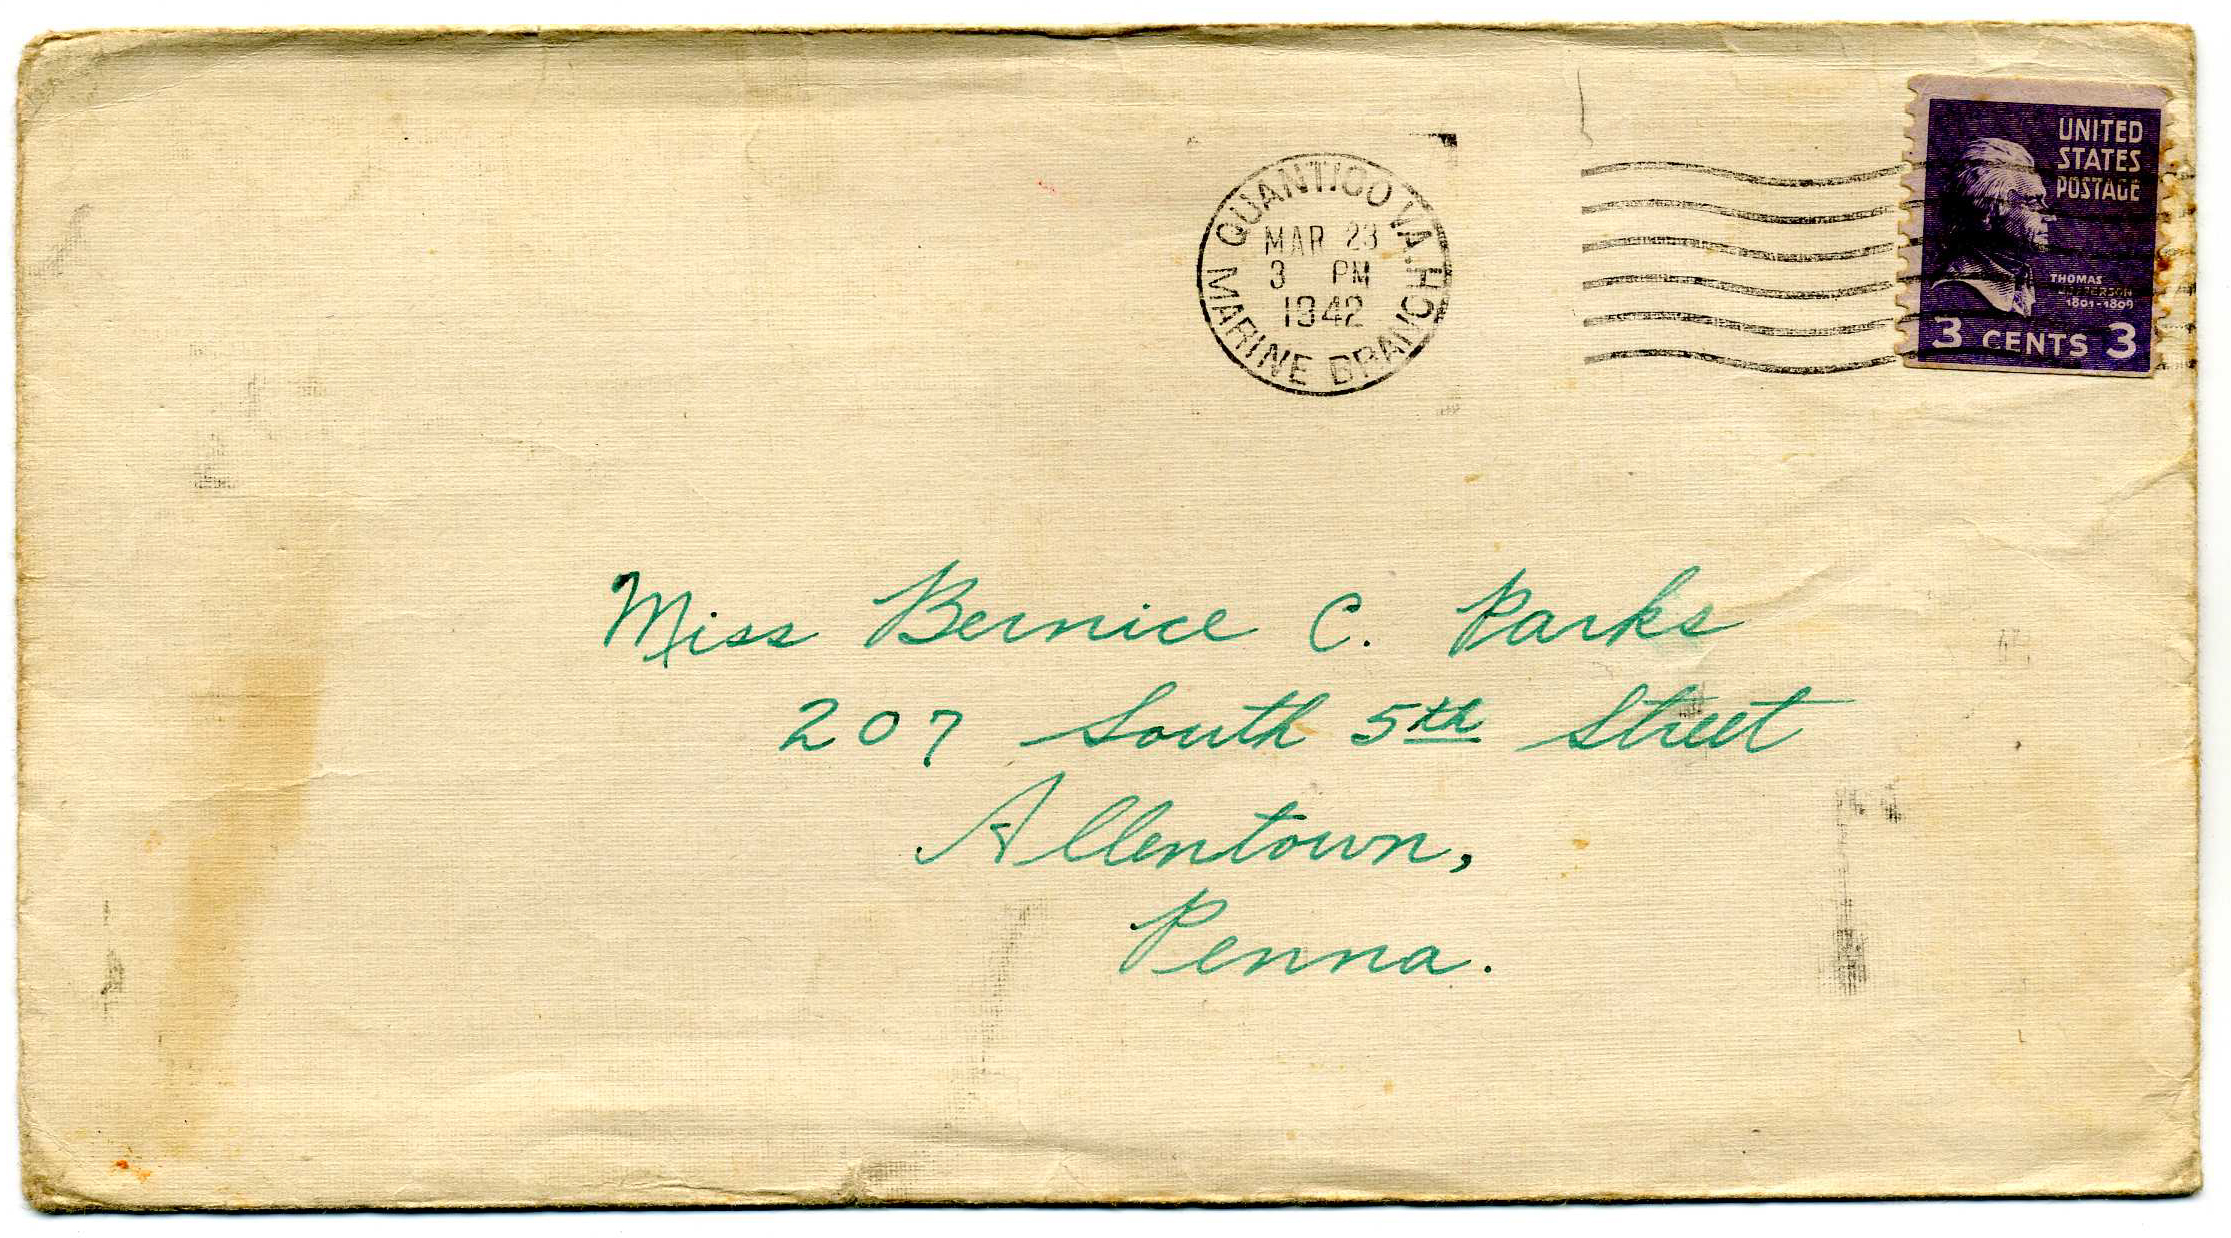 QUANTICO VA.
MAR 23
3 PM
1942
MARINE BRANCH
UNITED
STATES
POSTAGE
THOMAS
JEFFERSON
1801-1809
3 CENTS 3
Miss Bernice C. Parks
207 South 5th Street
Allentown,
Penna.